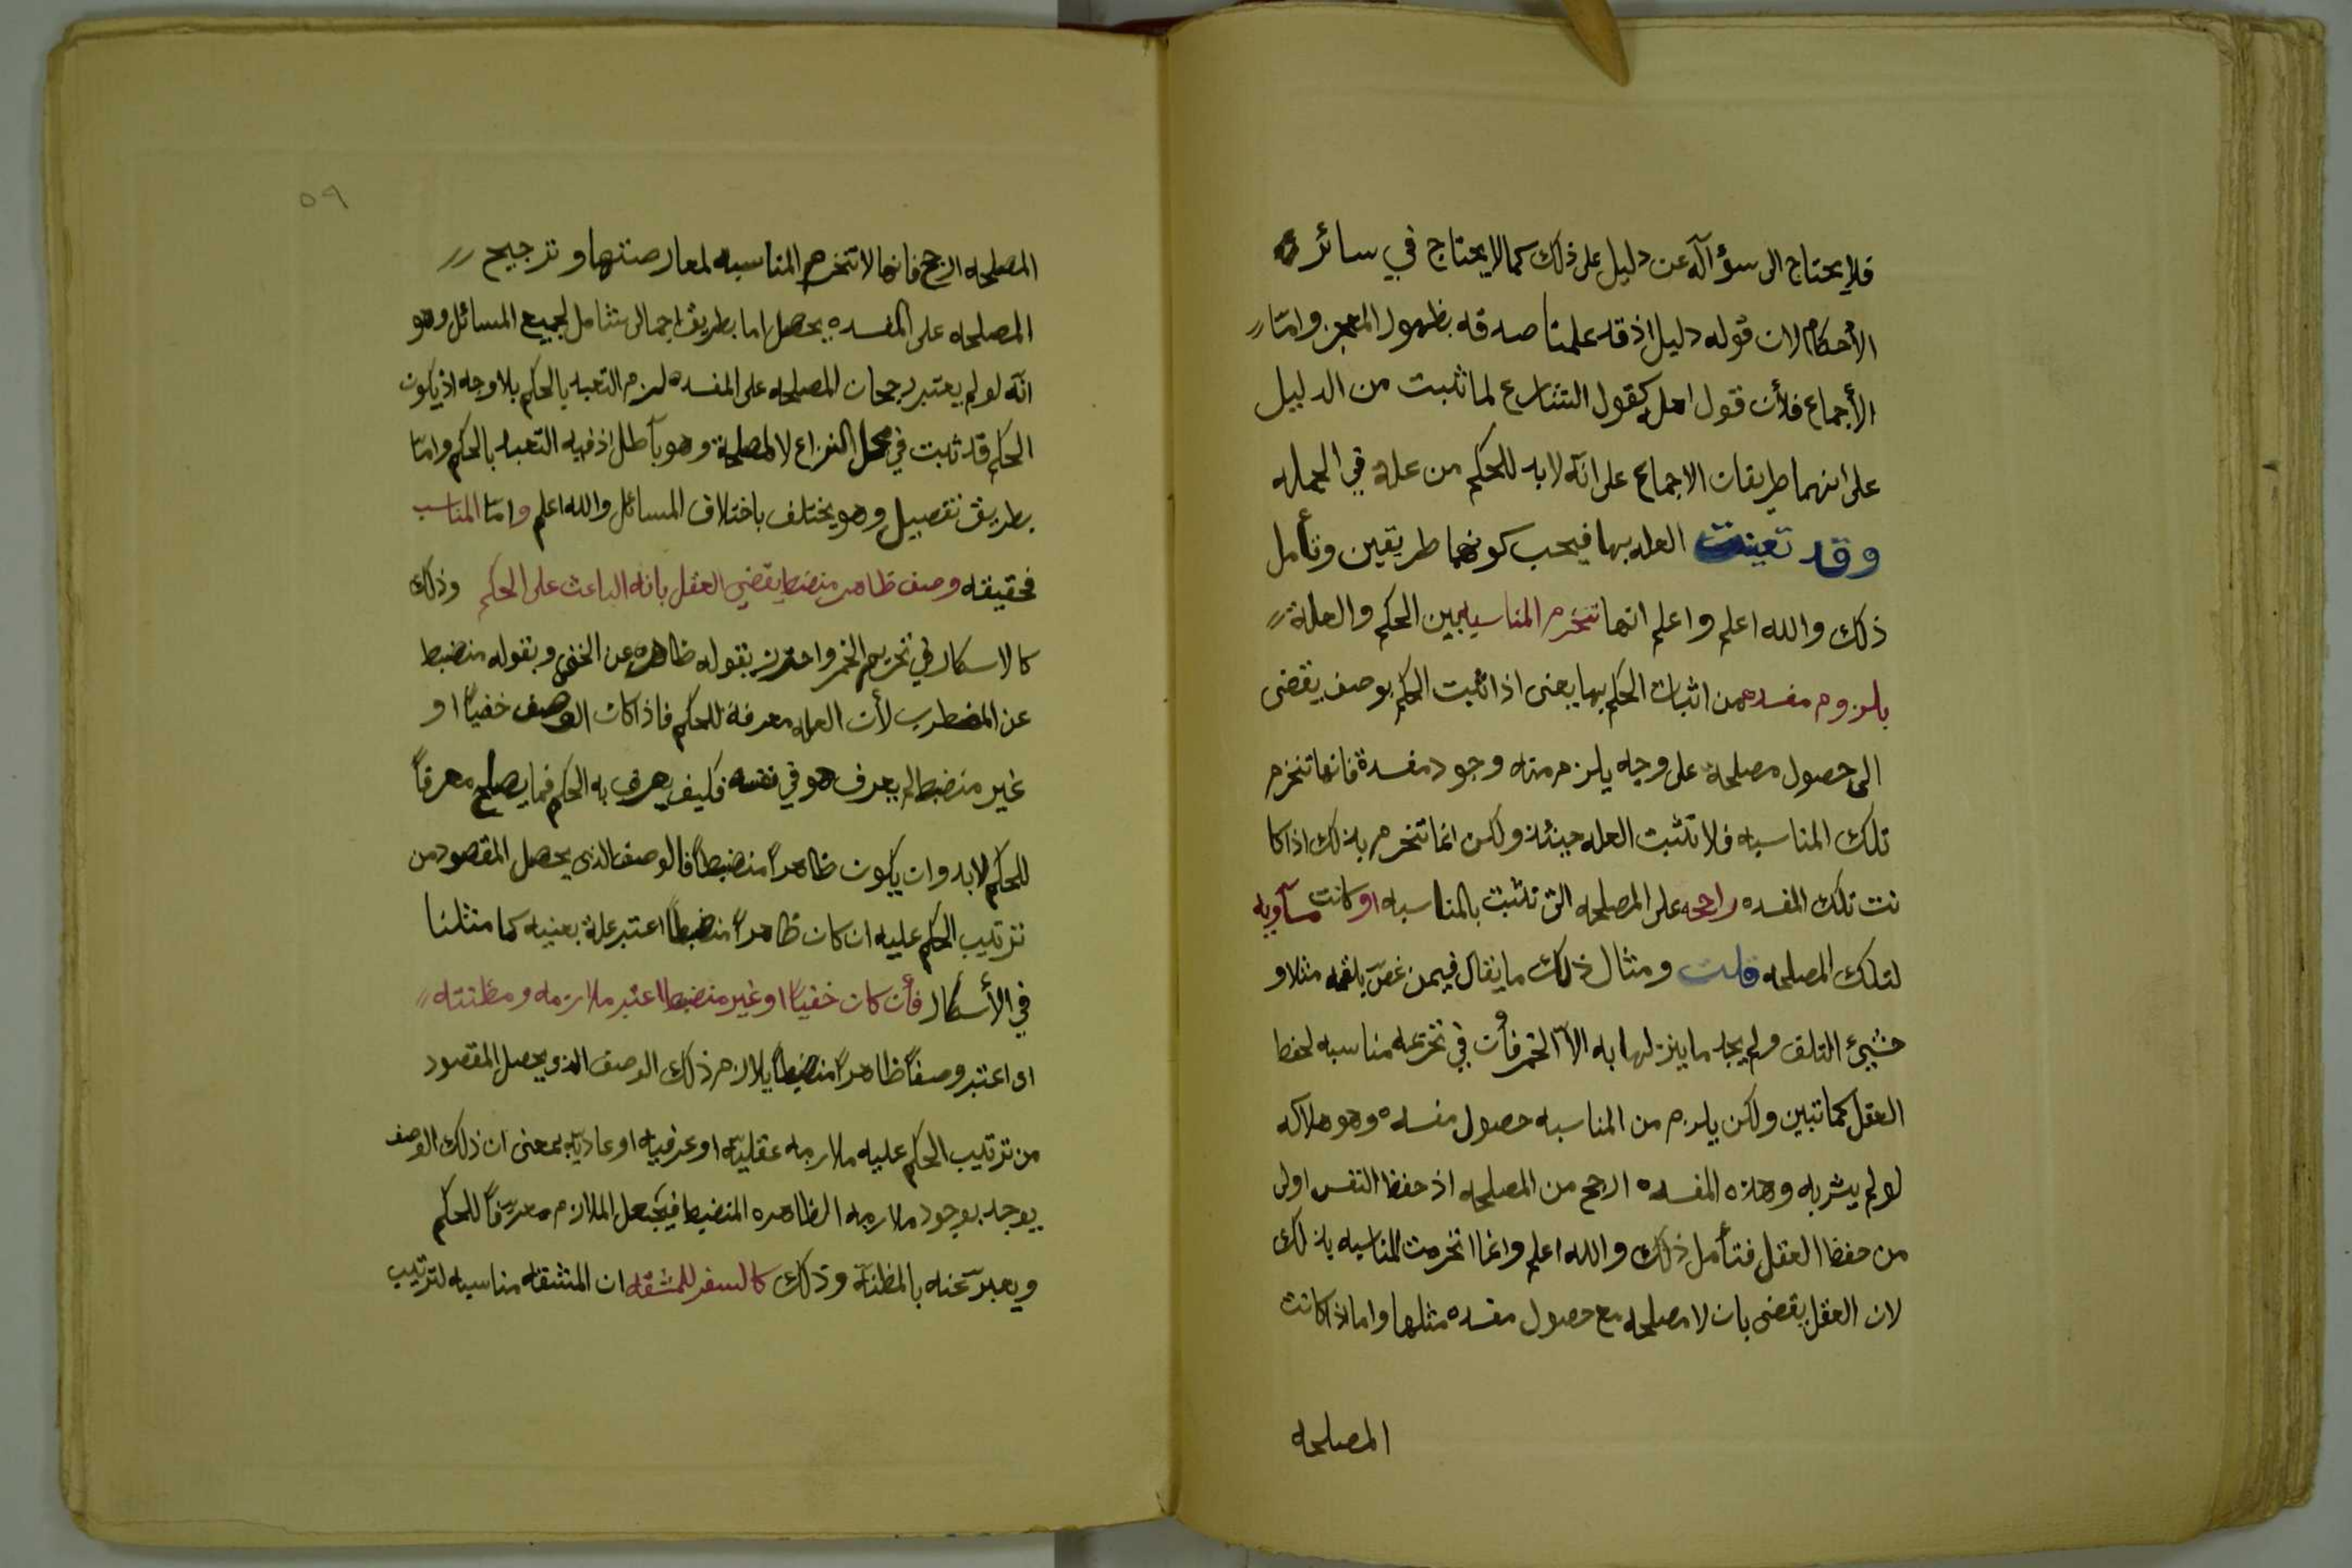 فلا يحتاج الى سؤآله عن دليل على ذلك كما لا يحتاج في سائر
الأحكام لان قوله دليل اذ قد علمنا صدقه بظهور المعجز وامّا
الأجماع فلأن قول اهله كقول الشارع لما ثبت من الدليل
على انهما طريقان الاجماع على انّه لا بد للحكم من علة في الجمله
وقد تعينت العله بها فيجب كونهما طريقين وتأمل
ذلك والله اعلم واعلم انها تنخرم المناسبه بين الحكم والعلة
بلزوم مفسده من اثبات الحكم بها يعنى اذا ثبت الحكم بوصف يقضى
الى حصول مصلحة على وجه يلزم منه وجود مفسدة فانها تنخرم
تلك المناسبه فلا تثبت العله حينئذ ولكن انما تنخرم بذلك اذا كا
نت تلك المفسده راجحه على المصلحه التى تثبت بالمناسبه او كانت مسآويه
لتلك المصلحه قلت ومثال ذلك ما يقال فيمن غصّ بلقمه مثلا و
خشيئ التلف ولم يجد ما ينزلها به الآ الخمر فأن في تحريمه مناسبه لحفظ
العقل كما تبين ولكن يلزم من المناسبه حصول مفسده وهو هلاكه
لو لم يشربه وهذه المفسده ارجح من المصلحه اذ حفظ النفس اولى
من حفظ العقل فتأمل ذلك والله اعلم وانما انخرمت المناسبه بذلك
لان العقل يقضى بان لا مصلحه مع حصول مفسده مثلها واما اذا كانت
المصلحه
٥٩
المصلحه ارجح فانها لا تنخرم المناسبه لمعارضتها وترجيح
المصلحه على المفسده يحصل اما بطريق اجمالى شامل لجميع المسائل وهو
انّه لو لم يعتبر رجحان المصلحه على المفسده لزم التعبد بالحكم بلا وجه اذ يكون
الحكم قد ثبت في محل النزاع لا لمصلحة وهو بآطل اذ فيه التعبد بالحكم وامّا
بطريق تفصيل وهو يختلف باختلاف المسائل والله اعلم وامّا المناسب
فحقيقه وصف ظاهر منضبط يقضي العقل بانه الباعث على الحكم وذلك
كالاسكار في تحريم الخمر واحترز بقوله ظاهر عن الخفى وبقوله منضبط
عن المضطرب لأن العله معرفة للحكم فاذا كان الوصف خفيًا او
غير منضبط لم يعرف هو في نفسه فكيف يعرف به الحكم فما يصلح معرفاً
للحكم لا بد وان يكون ظاهراً منضبطاً فالوصف الذى يحصل المقصود من
ترتيب الحكم عليه ان كان ظاهراً منضبطاً اعتبر علة بعنيه كما مثلنا
في الأسكار فأن كان خفيًا او غير منضبط اعتبر ملازمه ومظنته
اى اعتبر وصفاً ظاهراً منضبطاً يلازم ذلك الوصف الذى يحصل المقصود
من ترتيب الحكم عليه ملازمه عقليّه او عرفيه او عاديّه بمعنى ان ذلك الوصف
يوجد بوجود ملازمه الظاهره المنضبط فيجعل الملازم معرّفاً للحكم
ويعبّر عنه بالمظنّه وذلك كالسفر للمشقه ان المشقه مناسبه لترتيب